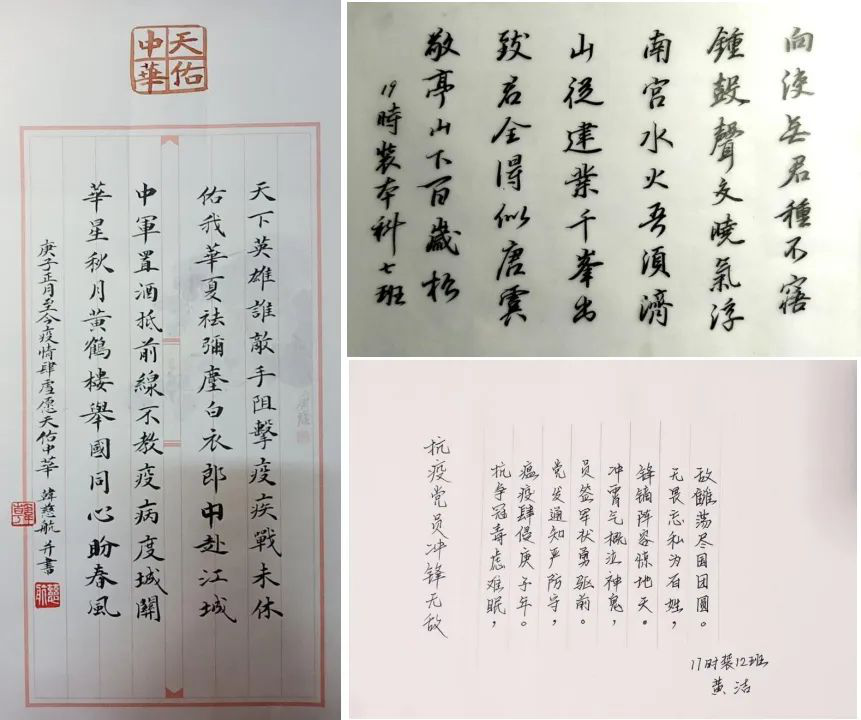 天佑
中華
天下英雄誰敵手阻擊疫疾戰未休
佑我華夏祛彌塵白衣郎中赴江城
中軍置酒抵前線不教疫病度城關
華星秋月黃鶴樓舉國同心盼春風
庚子正月至今疫情肆虐愿天佑中华 慈航 并書
慈航
向使君種不
鍾鼓聲文曉氣浮
南宮水火吾須濟
山從建業千峯出
致君全得似唐虞
敬亭山下百歲松
19時裝本科七班
抗疫党员冲锋无敌
抗争冠毒虑难眠，
瘟疫肆侵庚子年。
党发通知严防守，
员签军状勇驱前。
冲霄气概泣神鬼，
锋镝阵容惊地天。
无畏忘私为百姓，
敌雠荡尽国团圆。
17时装12班
黄洁